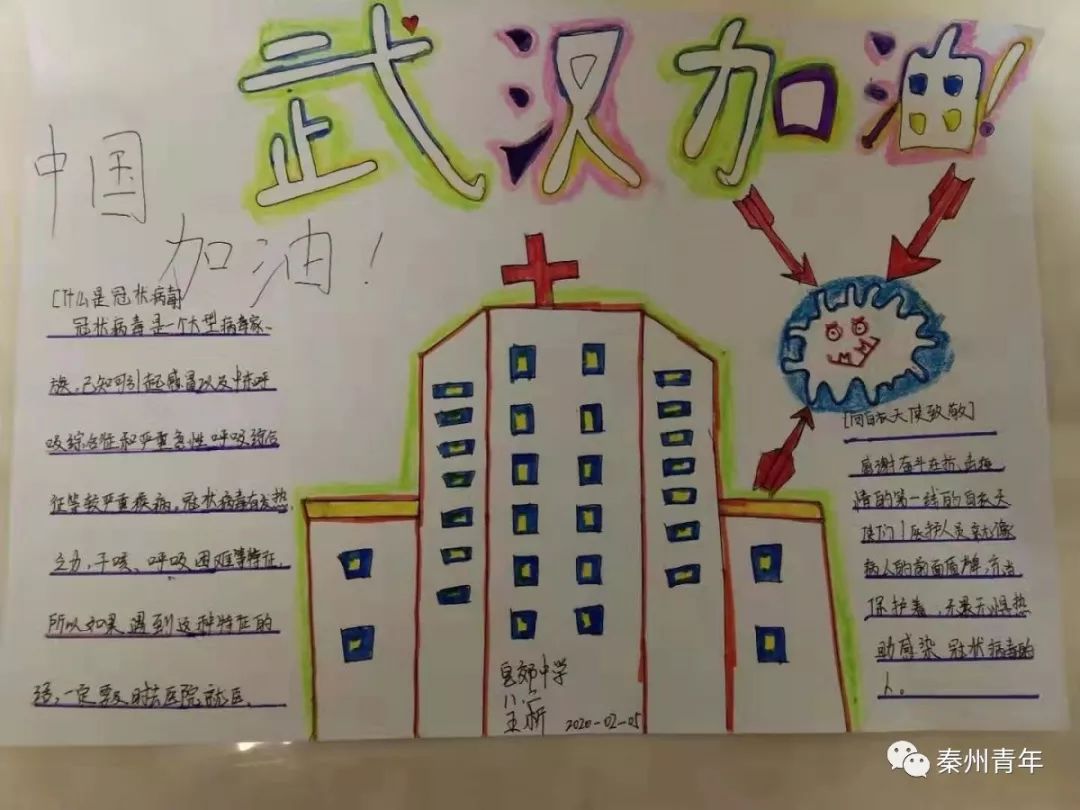 武汉加油!
中国
加油!
[什么是冠状病毒]
冠状病毒是一个大型病毒家
族,已知可引起感冒以及中东呼
吸综合征和严重急性呼吸综合
征等较严重疾病。冠状病毒有发热,
乏力,干咳、呼吸困难等特征,
所以如果遇到这种特征的
话,一定要及时去医院就医。
[向白衣天使致敬]
感谢奋斗在抗击疫
情的第一线的白衣天
使们!医护人员就像
病人的前面盾牌,
保护着,无畏无惧
助感染冠状病毒的
人。
皂郊中学
王昕 2020-02-05
秦州青年